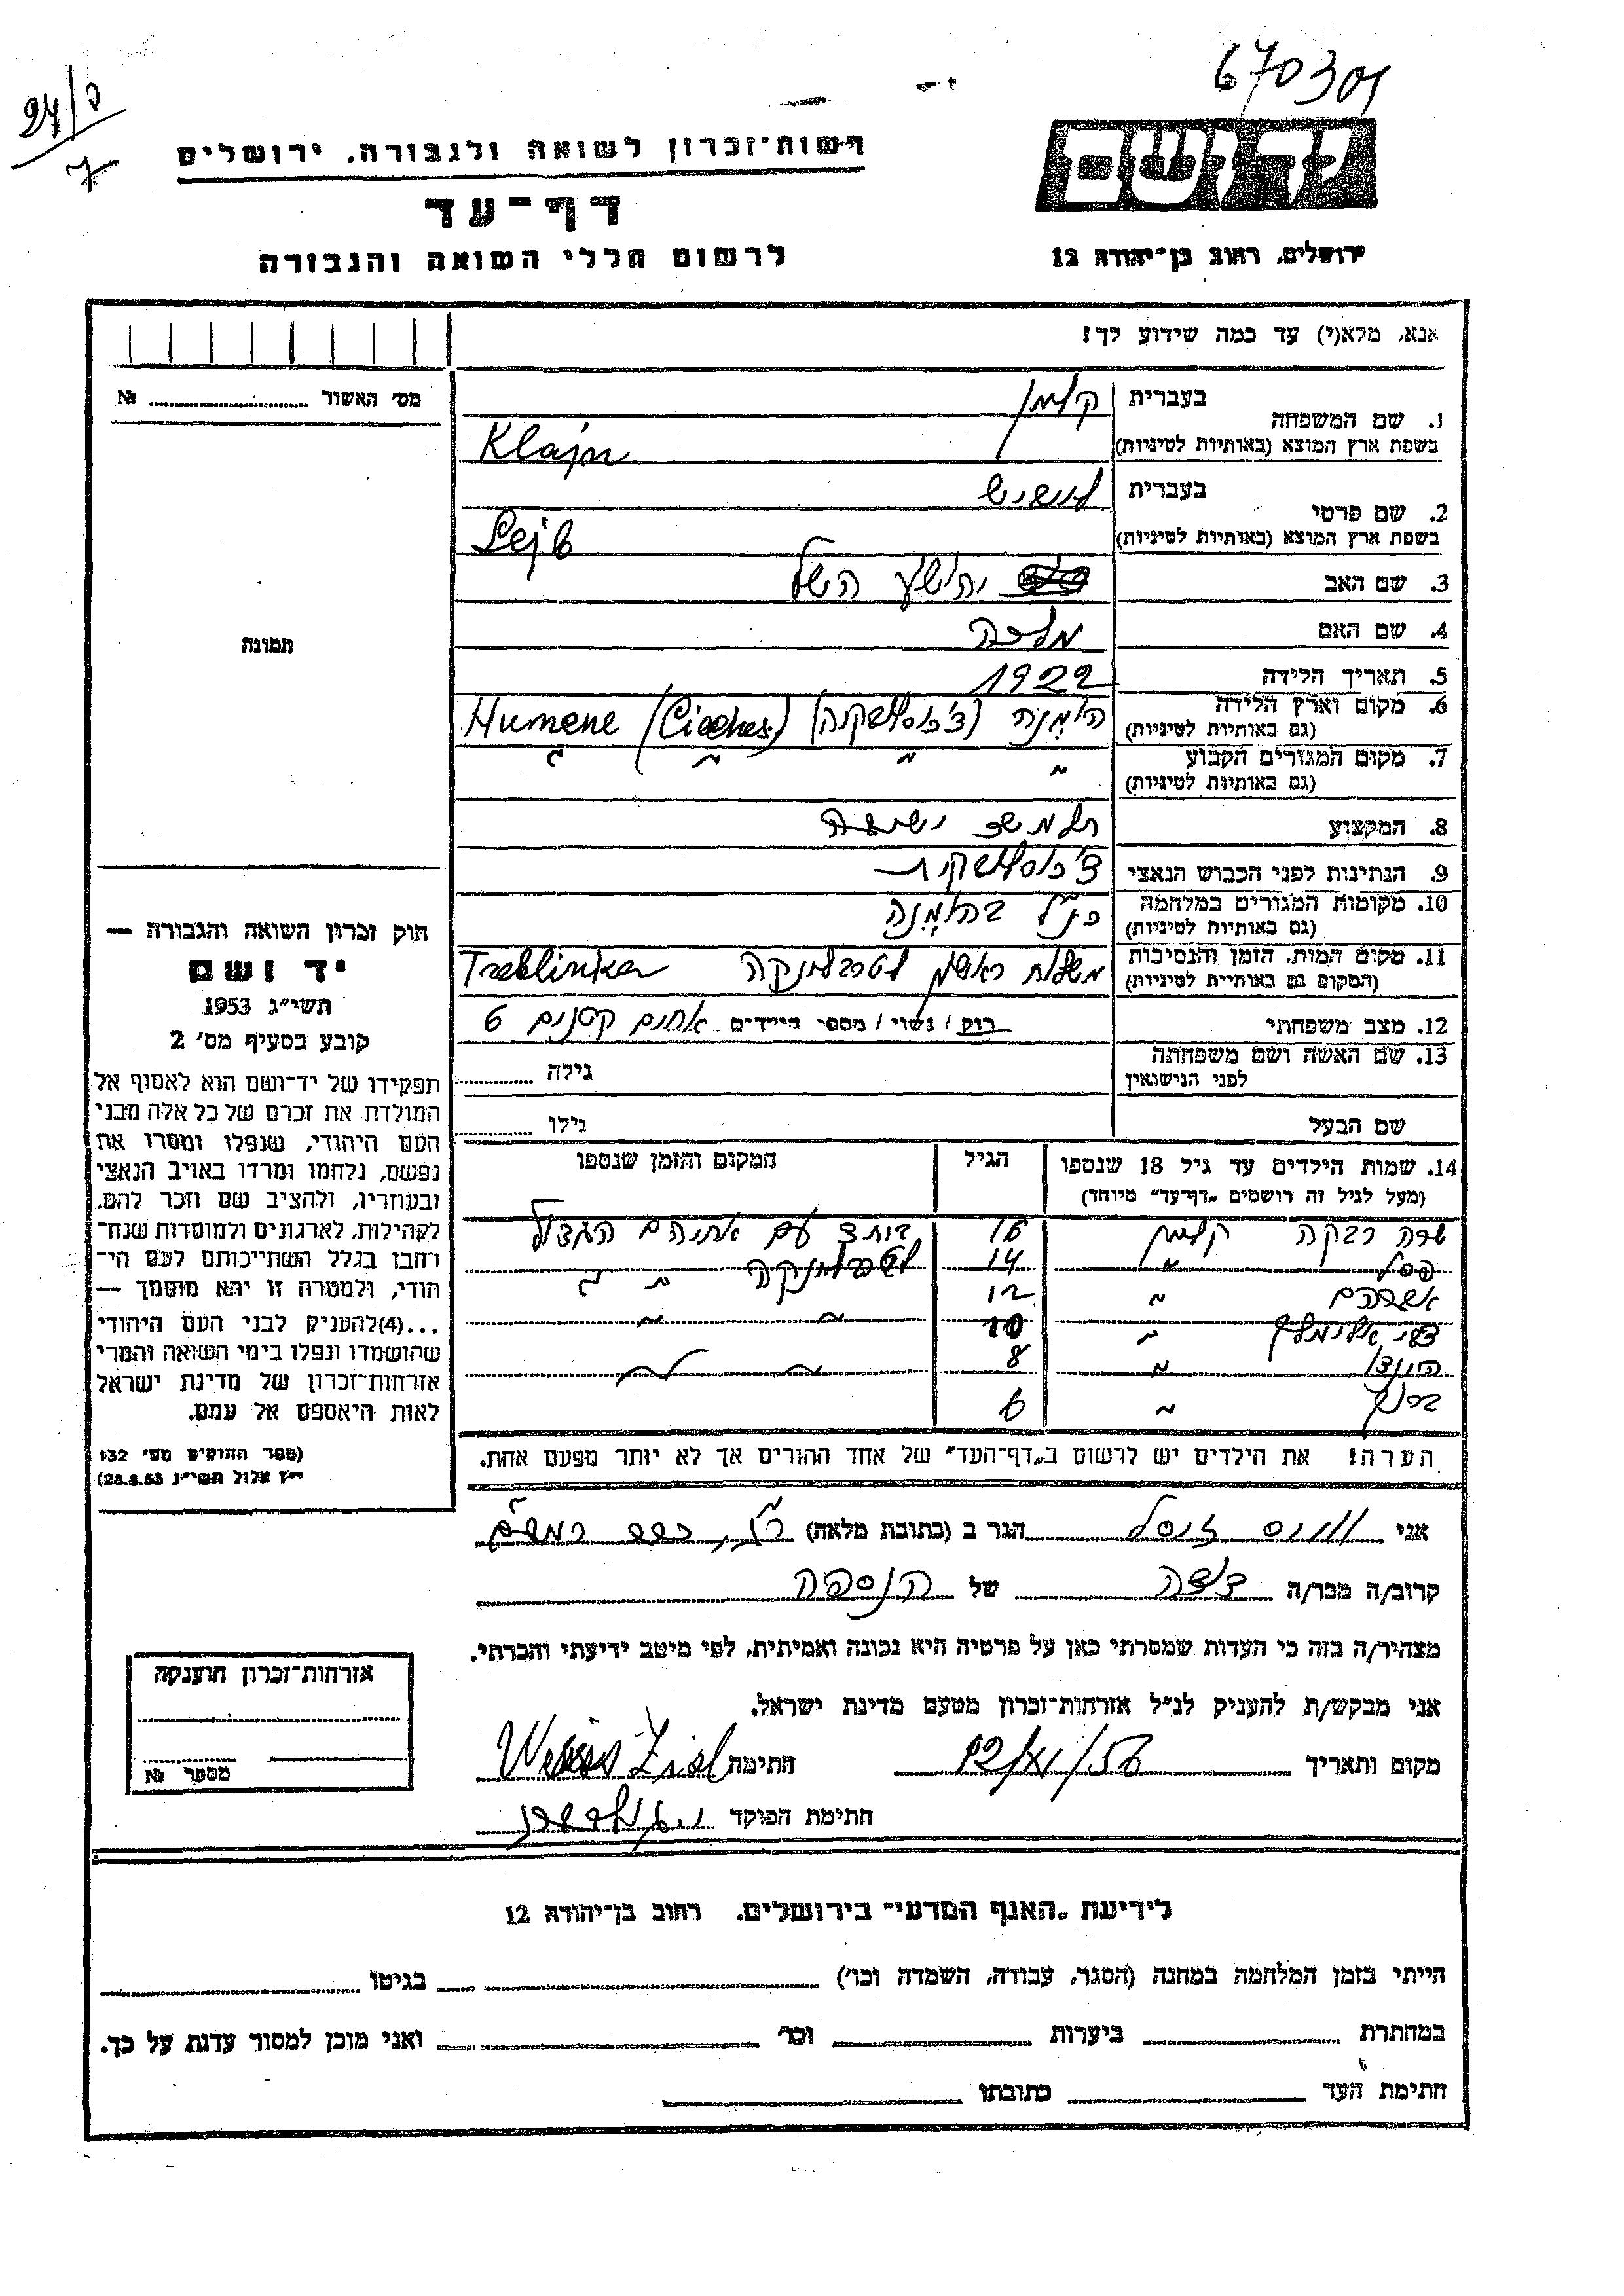 670301
24/ז
7
רשות־זכרון לשואה ולגבורה, ירושלים
יד ושם
דף־עד
ירושלים, רחוב בן־יהודה 12
לרשום חללי השואה והגבורה
אנא, מלא(י) עד כמה שידוע לך!
מס׳ האשור № 
1. שם המשפחה
בעברית קליין
בשפת ארץ המוצא (באותיות לטיניות) Klajn
2. שם פרטי
בעברית
בשפת ארץ המוצא (באותיות לטיניות) Lejb
3. שם האב יהושע השל
4. שם האם מלכה
5. תאריך הלידה 1922
6. מקום וארץ הלידה
(גם באותיות לטיניות) הומנה (צ׳כוסלובקיה) Humene
7. מקום המגורים הקבוע
(גם באותיות לטיניות) " " " "
8. המקצוע תלמיד ישיבה
9. הנתינות לפני הכבוש הנאצי צ׳כוסלובקית
10. מקומות המגורים במלחמה
(גם באותיות לטיניות) כנ״ל בהומנה
11. מקום המות, הזמן והנסיבות
(המקום גם באותיות לטיניות) משלוח ראשון לטרבלינקה Treblinka
12. מצב משפחתי רוק / נשוי / מספר הילדים אחים קטנים 6
13. שם האשה ושם משפחתה
לפני הנישואין גילה
שם הבעל גילו
14. שמות הילדים עד גיל 18 שנספו
(מעל לגיל זה רושמים „דף־עד” מיוחד)
הגיל
המקום והזמן שנספו
שרה רבקה קליין 16 ביחד עם אחיהם הגדול
פסל " 14 לטרבלינקה " "
אברהם " 12
צבי אלימלך " 10 " "
הינדו " 8 " "
ברוך " 6
הערה! את הילדים יש לרשום ב„דף־העד” של אחד ההורים אך לא יותר מפעם אחת.
תמונה
חוק זכרון השואה והגבורה —
יד ושם
תשי״ג 1953
קובע בסעיף מס׳ 2
תפקידו של יד־ושם הוא לאסוף אל
המולדת את זכרם של כל אלה מבני
העם היהודי, שנפלו ומסרו את
נפשם, נלחמו ומרדו באויב הנאצי
ובעוזריו, ולהציב שם וזכר להם,
לקהילות, לארגונים ולמוסדות שנח־
רבו בגלל השתייכותם לעם הי־
הודי, ולמטרה זו יהא מוסמך —
...(4)להעניק לבני העם היהודי
שהושמדו ונפלו בימי השואה והמרי
אזרחות־זכרון של מדינת ישראל
לאות היאספם אל עמם.
(ספר החוקים מס׳ 132
י״ז אלול תשי״ג 28.8.53)
אני ווייס זיסל הגר ב (כתובת מלאה)
קרוב/ה מכר/ה של הנספה
מצהיר/ה בזה כי העדות שמסרתי כאן על פרטיה היא נכונה ואמיתית, לפי מיטב ידיעתי והכרתי.
אני מבקש/ת להעניק לנ״ל אזרחות־זכרון מטעם מדינת ישראל.
מקום ותאריך 12/XI/56 חתימת Weiss Zisl
חתימת הפוקד
אזרחות־זכרון הוענקה
מספר №
לידיעת „האגף המדעי” בירושלים, רחוב בן־יהודה 12
הייתי בזמן המלחמה במחנה (הסגר, עבודה, השמדה וכו׳) בגיטו
במחתרת ביערות וכו׳ ואני מוכן למסור עדות על כך.
חתימת העד כתובתו